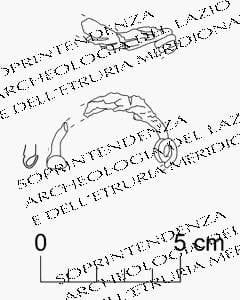 SOPRINTENDENZA
ARCHEOLOGIA DEL LAZIO
E DELL'ETRURIA MERIDIONA
SOPRINTENDENZA
ARCHEOLOGIA DEL LAZIO
E DELL'ETRURIA MERIDIO
0 5 cm
SOPRINTENDENZA
ARCHEOLOGIA DEL
E DELL'ETRURIA MER